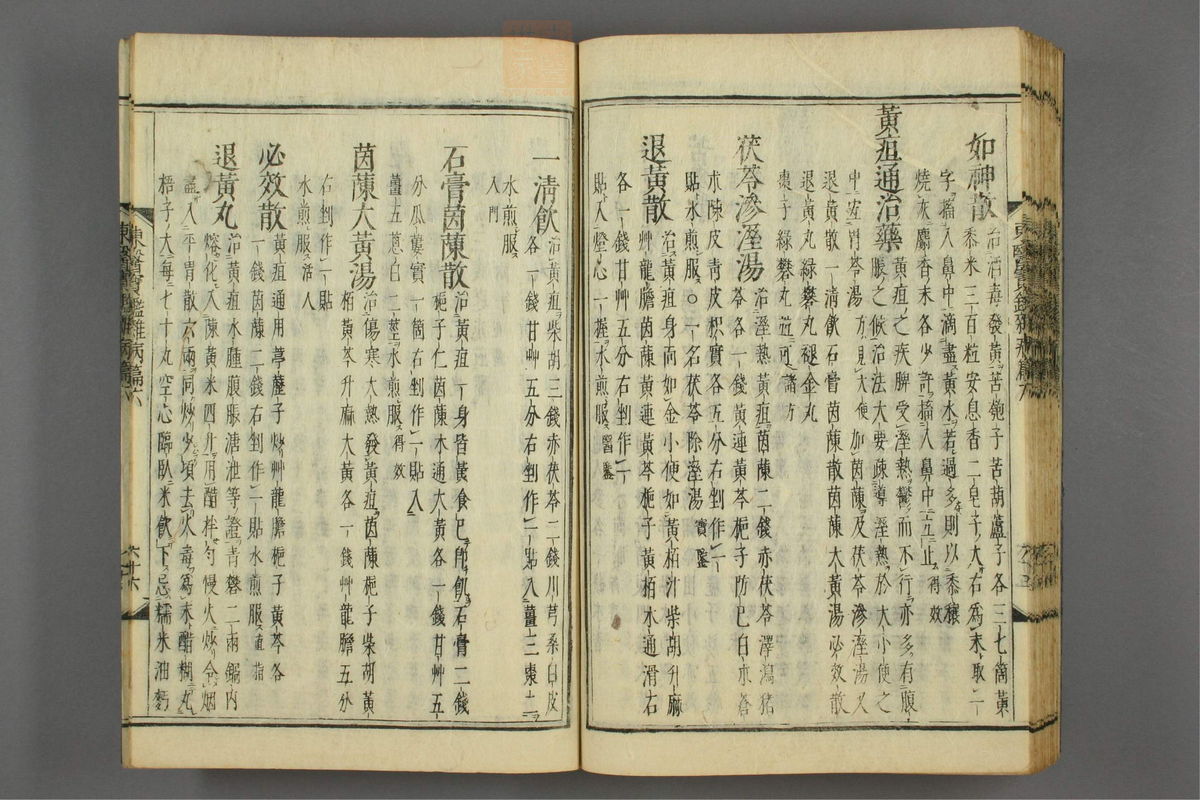 如神散
治酒毒發黃苦瓠子苦葫蘆子各三七箇黃
黍米三百粒安息香二皂子大右爲末取二
字搐入鼻中滴盡黃水若過多則以黍穰
燒灰麝香末各少許搐入鼻中立止 得效
黃疸通治藥
黃疸之疾脾受溼熱鬱而不行亦多有腹
脹之候治法大要疎導溼熱於大小便之
中宜胃苓湯 方見大便 加茵蔯及茯苓滲溼湯又
退黃散一清飮石膏茵蔯散茵蔯大黃湯必效散
退黃丸綠礬丸褪金丸
棗子綠礬丸並可 諸方
茯苓滲溼湯
治溼熱黃疸茵蔯二錢赤茯苓澤瀉猪
苓各一錢黃連黃芩梔子防己白朮蒼
朮陳皮靑皮枳實各五分右剉作一
貼水煎服○一名茯苓除溼湯 寶鑑
退黃散
治黃疸身面如金小便如黃栢汁柴胡升麻
艸龍膽茵蔯黃連黃芩梔子黃栢木通滑石
各一錢甘艸五分右剉作一
貼入燈心一握水煎服 醫鑑
一清飮
治黃疸柴胡三錢赤茯苓二錢川芎桑白皮
各一錢甘艸五分右剉作一貼入薑三棗二
水煎服
入門
石膏茵蔯散
治黃疸一身皆黃食已卽飢石膏二錢
梔子仁茵蔯木通大黃各一錢甘艸五
分瓜蔞實一箇右剉作二貼入
薑五葱白二莖水煎服 得效
茵蔯大黃湯
治傷寒大熱發黃疸茵蔯梔子柴胡黃
栢黃芩升麻大黃各一錢艸龍膽五分
右剉作一貼
水煎服 活人
必效散
黃疸通用葶藶子炒艸龍膽梔子黃芩各
一錢茵蔯二錢右剉作一貼水煎服 直指
退黃丸
治黃疸水腫腹脹溏泄等證靑礬二兩鍋內
熔化入陳黃米四升用醋拌勻慢火炒令烟
盡入平胃散六兩同炒少頃去火毒爲末醋糊丸
梧子大每七十丸空心臨臥米飮下忌糯米油麪
東醫寶鑑雜病篇六
六十六